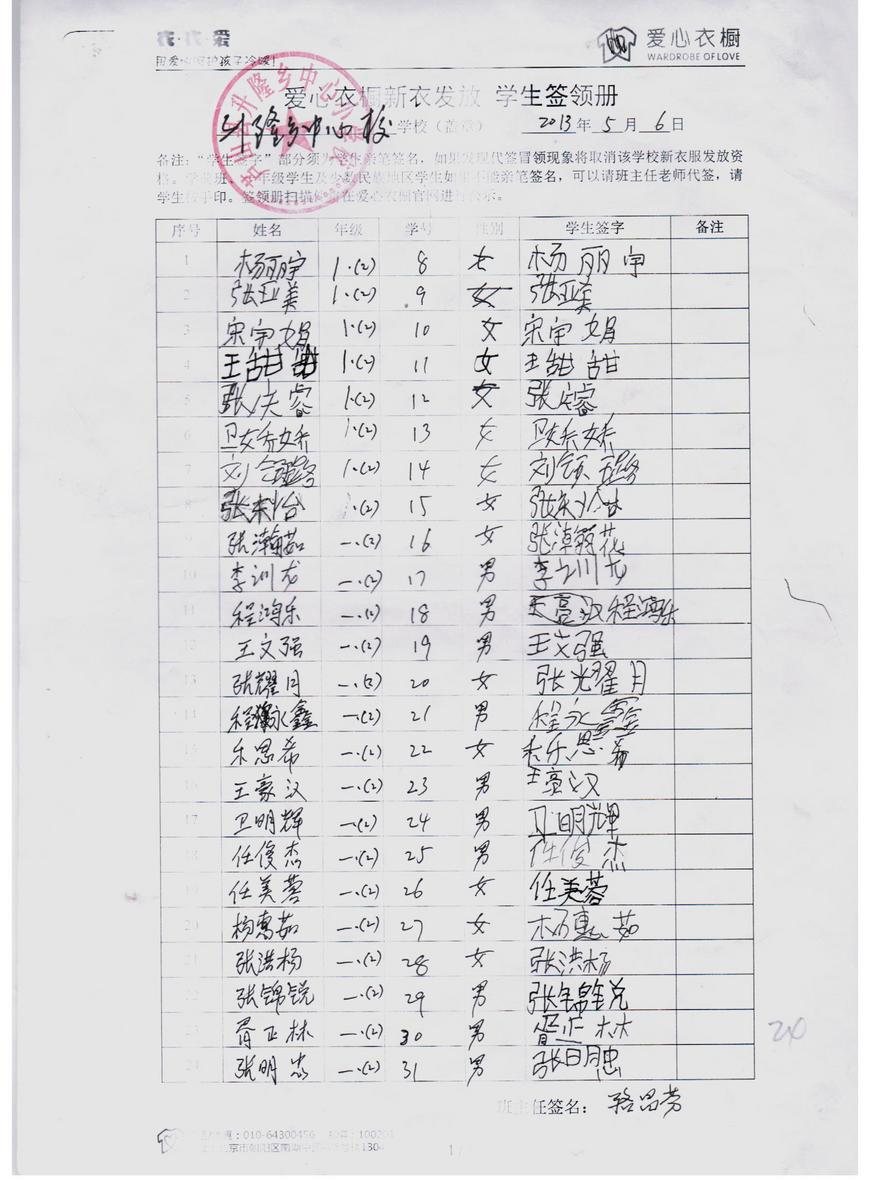 爱心衣橱
WARDROBE OF LOVE
爱心衣橱新衣发放 学生签领册
升隆乡中心校 学校（盖章） 2013年5月6日
备注：“学生签字”部分须为学生亲笔签名，如果发现代签冒领现象将取消该学校新衣服发放资
格。学前班、年级学生及少数民族地区学生如果不能亲笔签名，可以请班主任老师代签，请
学生按手印。签领册扫描件请在爱心衣橱官网进行公示。
序号 姓名 年级 学号 性别 学生签字 备注
1 杨丽宇 1.(2) 8 女 杨丽宇
2 张亚美 1.(2) 9 女 张亚美
3 宋宇娟 1.(2) 10 女 宋宇娟
4 王甜甜 1.(2) 11 女 王甜甜
5 张庆睿 1.(2) 12 女 张睿
6 卫娇娇 1.(2) 13 女 卫娇娇
7 刘璐 1.(2) 14 女 刘璐
8 张怡 .(2) 15 女 张
9 张瀚茹 一.(2) 16 女 张瀚花
10 李训龙 一.(2) 17 男 李训龙
11 程鸿乐 一.(2) 18 男 程鸿乐
12 王文强 一.(2) 19 男 王文强
13 张耀月 一.(2) 20 女 张耀月
14 程永鑫 一.(2) 21 男 程永鑫
15 乐思希 一.(2) 22 女 乐思希
16 王豪汉 一.(2) 23 男 王豪汉
17 卫明辉 一.(2) 24 男 卫明辉
18 任俊杰 一.(2) 25 男 任俊杰
19 任美蓉 一.(2) 26 女 任美蓉
20 杨惠茹 一.(2) 27 女 杨惠茹
21 张洪杨 一.(2) 28 女 张洪杨
22 张锦锐 一.(2) 29 男 张锦锐
23 胥正林 一.(2) 30 男 胥正林
24 张明忠 一.(2) 31 男 张明忠
20
班主任签名：骆思芳
：010-64300456
京市朝阳区
1